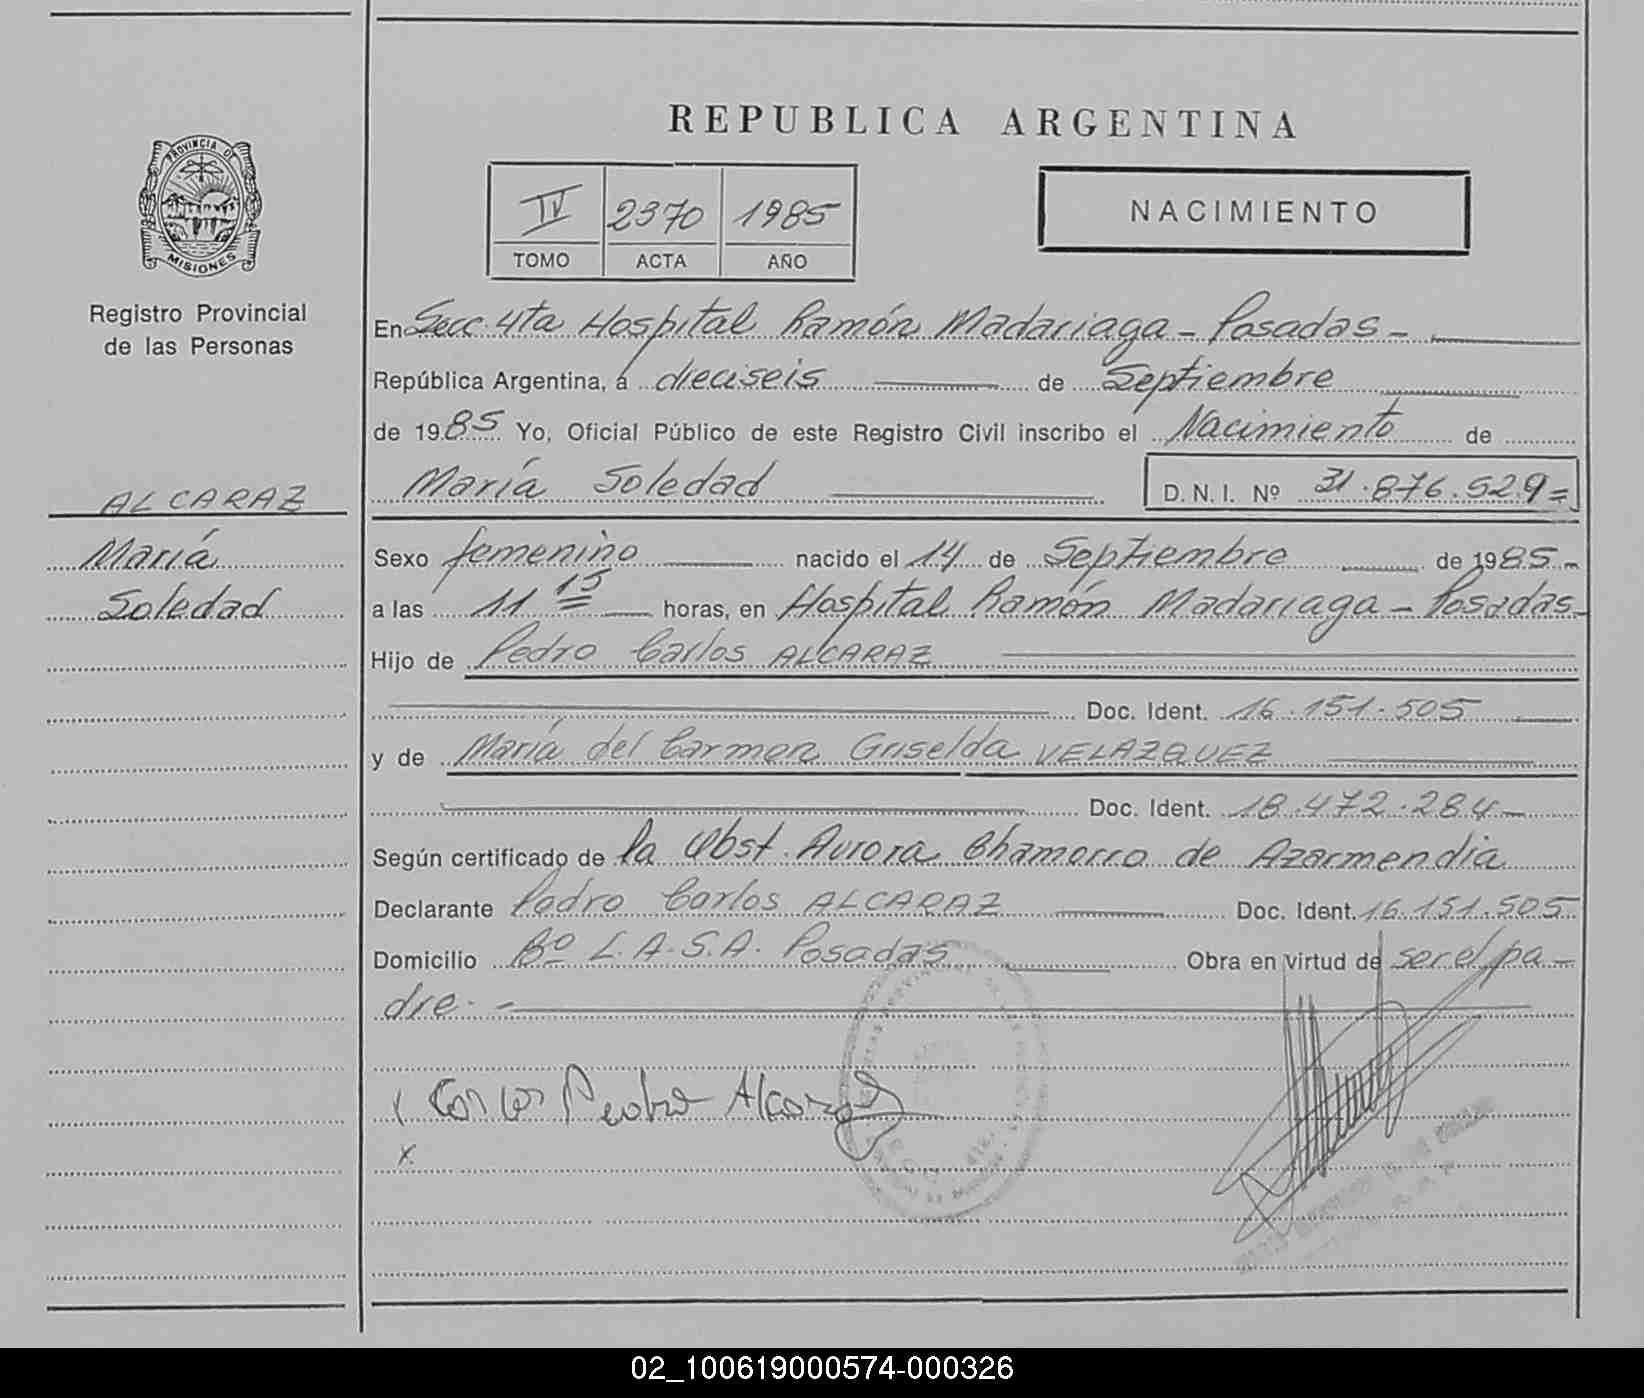 REPUBLICA ARGENTINA
PROVINCIA DE
MISIONES
Registro Provincial
de las Personas
IV 2370 1985
TOMO ACTA AÑO
NACIMIENTO
En Secc. 4ta Hospital Ramón Madariaga - Posadas -
República Argentina, a dieciseis de Septiembre
de 1985 Yo, Oficial Público de este Registro Civil inscribo el Nacimiento de
María Soledad D. N. I. Nº 31.876.529=
ALCARAZ
María
Soledad
Sexo femenino nacido el 14 de Septiembre de 1985-
a las 11 15 horas, en Hospital Ramón Madariaga - Posadas-
Hijo de Pedro Carlos ALCARAZ
Doc. Ident. 16.151.505
y de María del Carmen Griselda VELAZQUEZ
Doc. Ident. 18.472.284-
Según certificado de la Obst. Aurora Chamorro de Azarmendia
Declarante Pedro Carlos ALCARAZ Doc. Ident. 16.151.505
Domicilio Bº L.A.S.A. Posadas Obra en virtud de ser el pa-
dre. -
x Carlos Pedro Alcaraz
x.
02_100619000574-000326